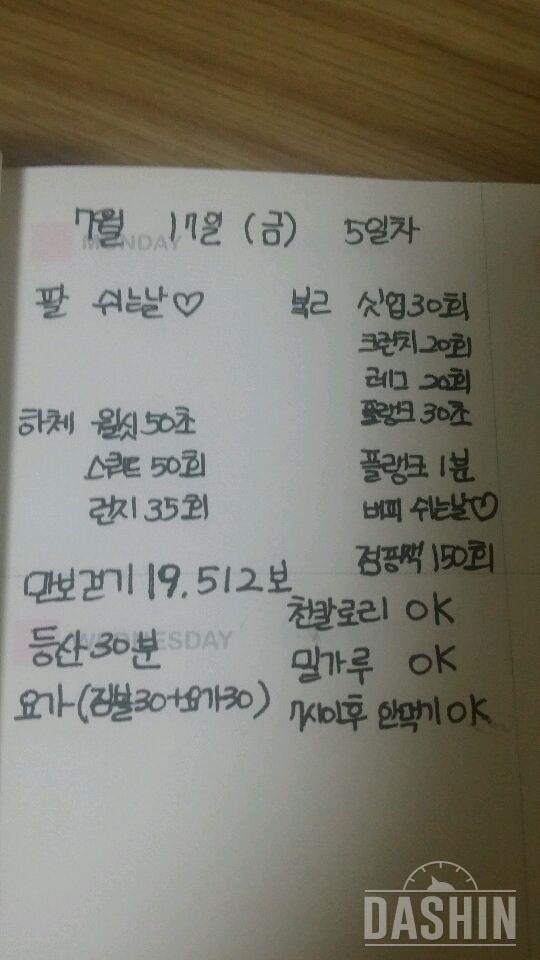 7월 17일 (금) 5일차
MONDAY
팔 쉬는날♡
하체 월싯 50초
스쿼트 50회
런지 35회
만보걷기 19.512보
등산 30분
WEDNESDAY
요가 (짐볼30+요가30)
복근 싯업 30회
크런치 20회
레그 20회
플랭크 30초
플랭크 1분
버피 쉬는날♡
점핑잭 150회
천칼로리 OK
밀가루 OK
7시이후 안먹기 OK
DASHIN